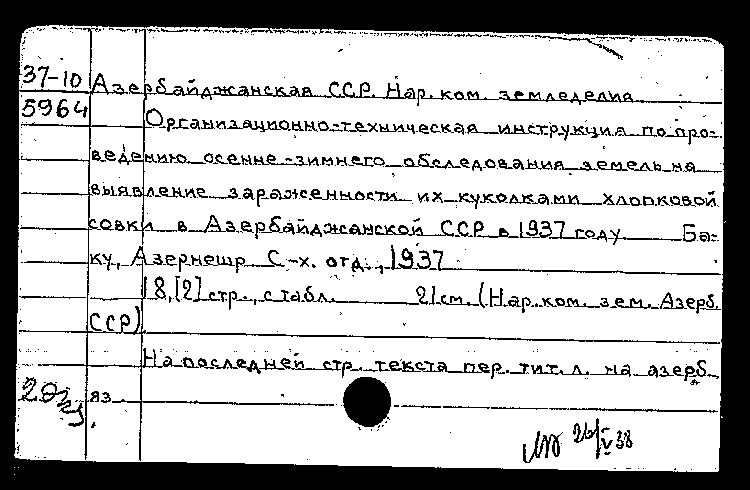 37-10 Азербайджанская ССР. Нар. ком. земледелия
5964 Организационно-техническая инструкция по про-
ведению осенне-зимнего обследования земель на
выявление зараженности их куколками хлопковой
совки в Азербайджанской ССР в 1937 году Ба-
ку, Азернешр С.-х. отд., 1937
18,[2] стр., с табл. 21 см. (Нар. ком. зем. Азерб.
ССР)
На последней стр. текста пер. тит. л. на азерб.
яз.
26/V 38